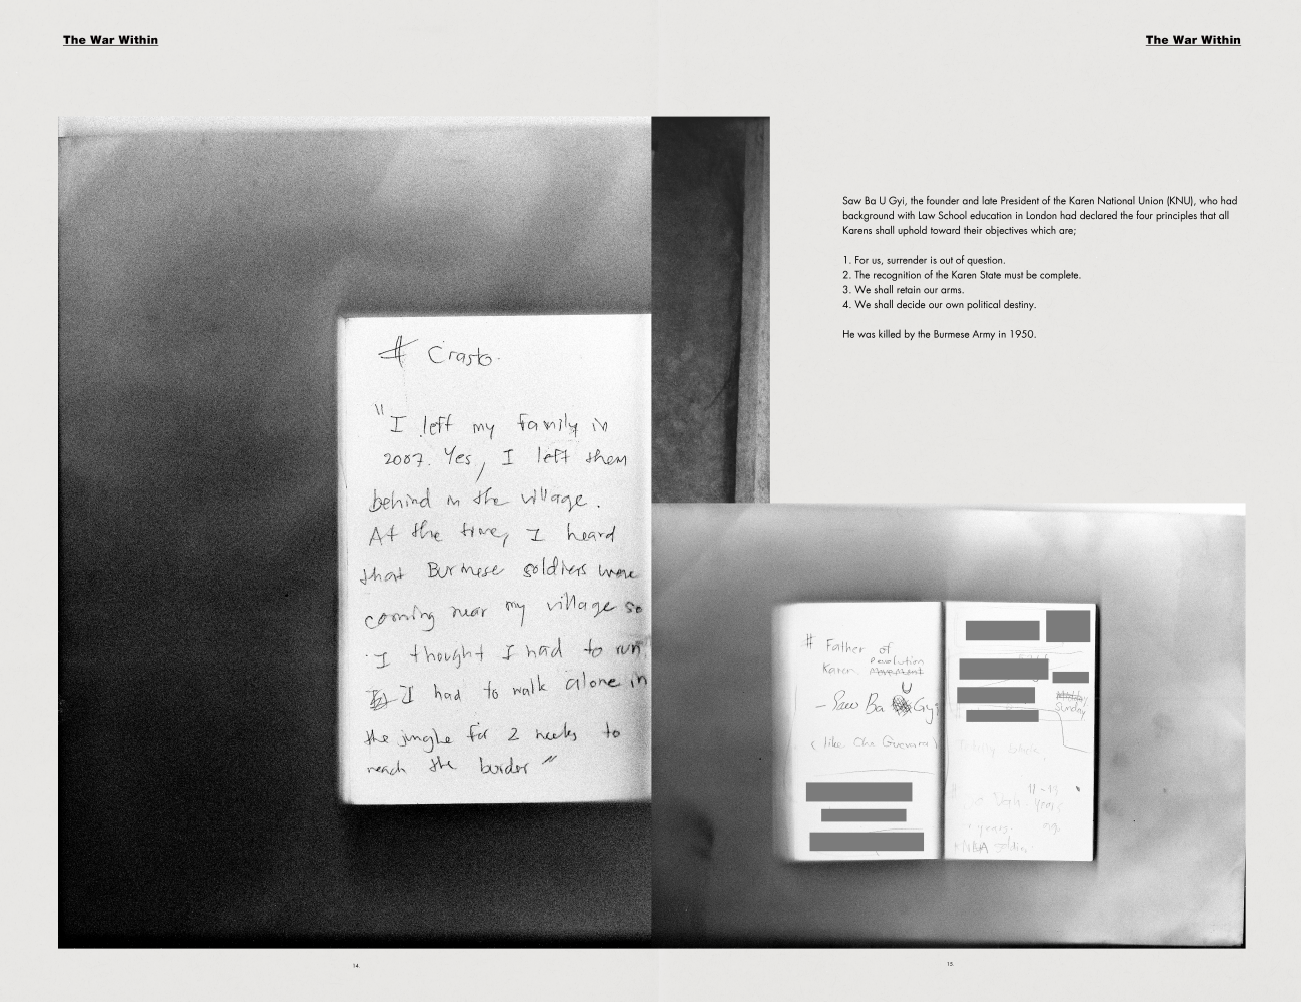 The War Within
The War Within
# Crasto.
"I left my family in
2007. Yes, I left them
behind in the village.
At the time, I heard
that Burmese soldiers were
coming near my village so
I thought I had to run.
I had to walk alone in
the jungle for 2 weeks to
reach the border"
Saw Ba U Gyi, the founder and late President of the Karen National Union (KNU), who had
background with Law School education in London had declared the four principles that all
Karens shall uphold toward their objectives which are;
1. For us, surrender is out of question.
2. The recognition of the Karen State must be complete.
3. We shall retain our arms.
4. We shall decide our own political destiny.
He was killed by the Burmese Army in 1950.
# Father of
Revolution
Karen Movement
U
- Saw Ba Gyi
(like Che Guevara)
Sunday
Totally
11-13
years
years. ago
14.
15